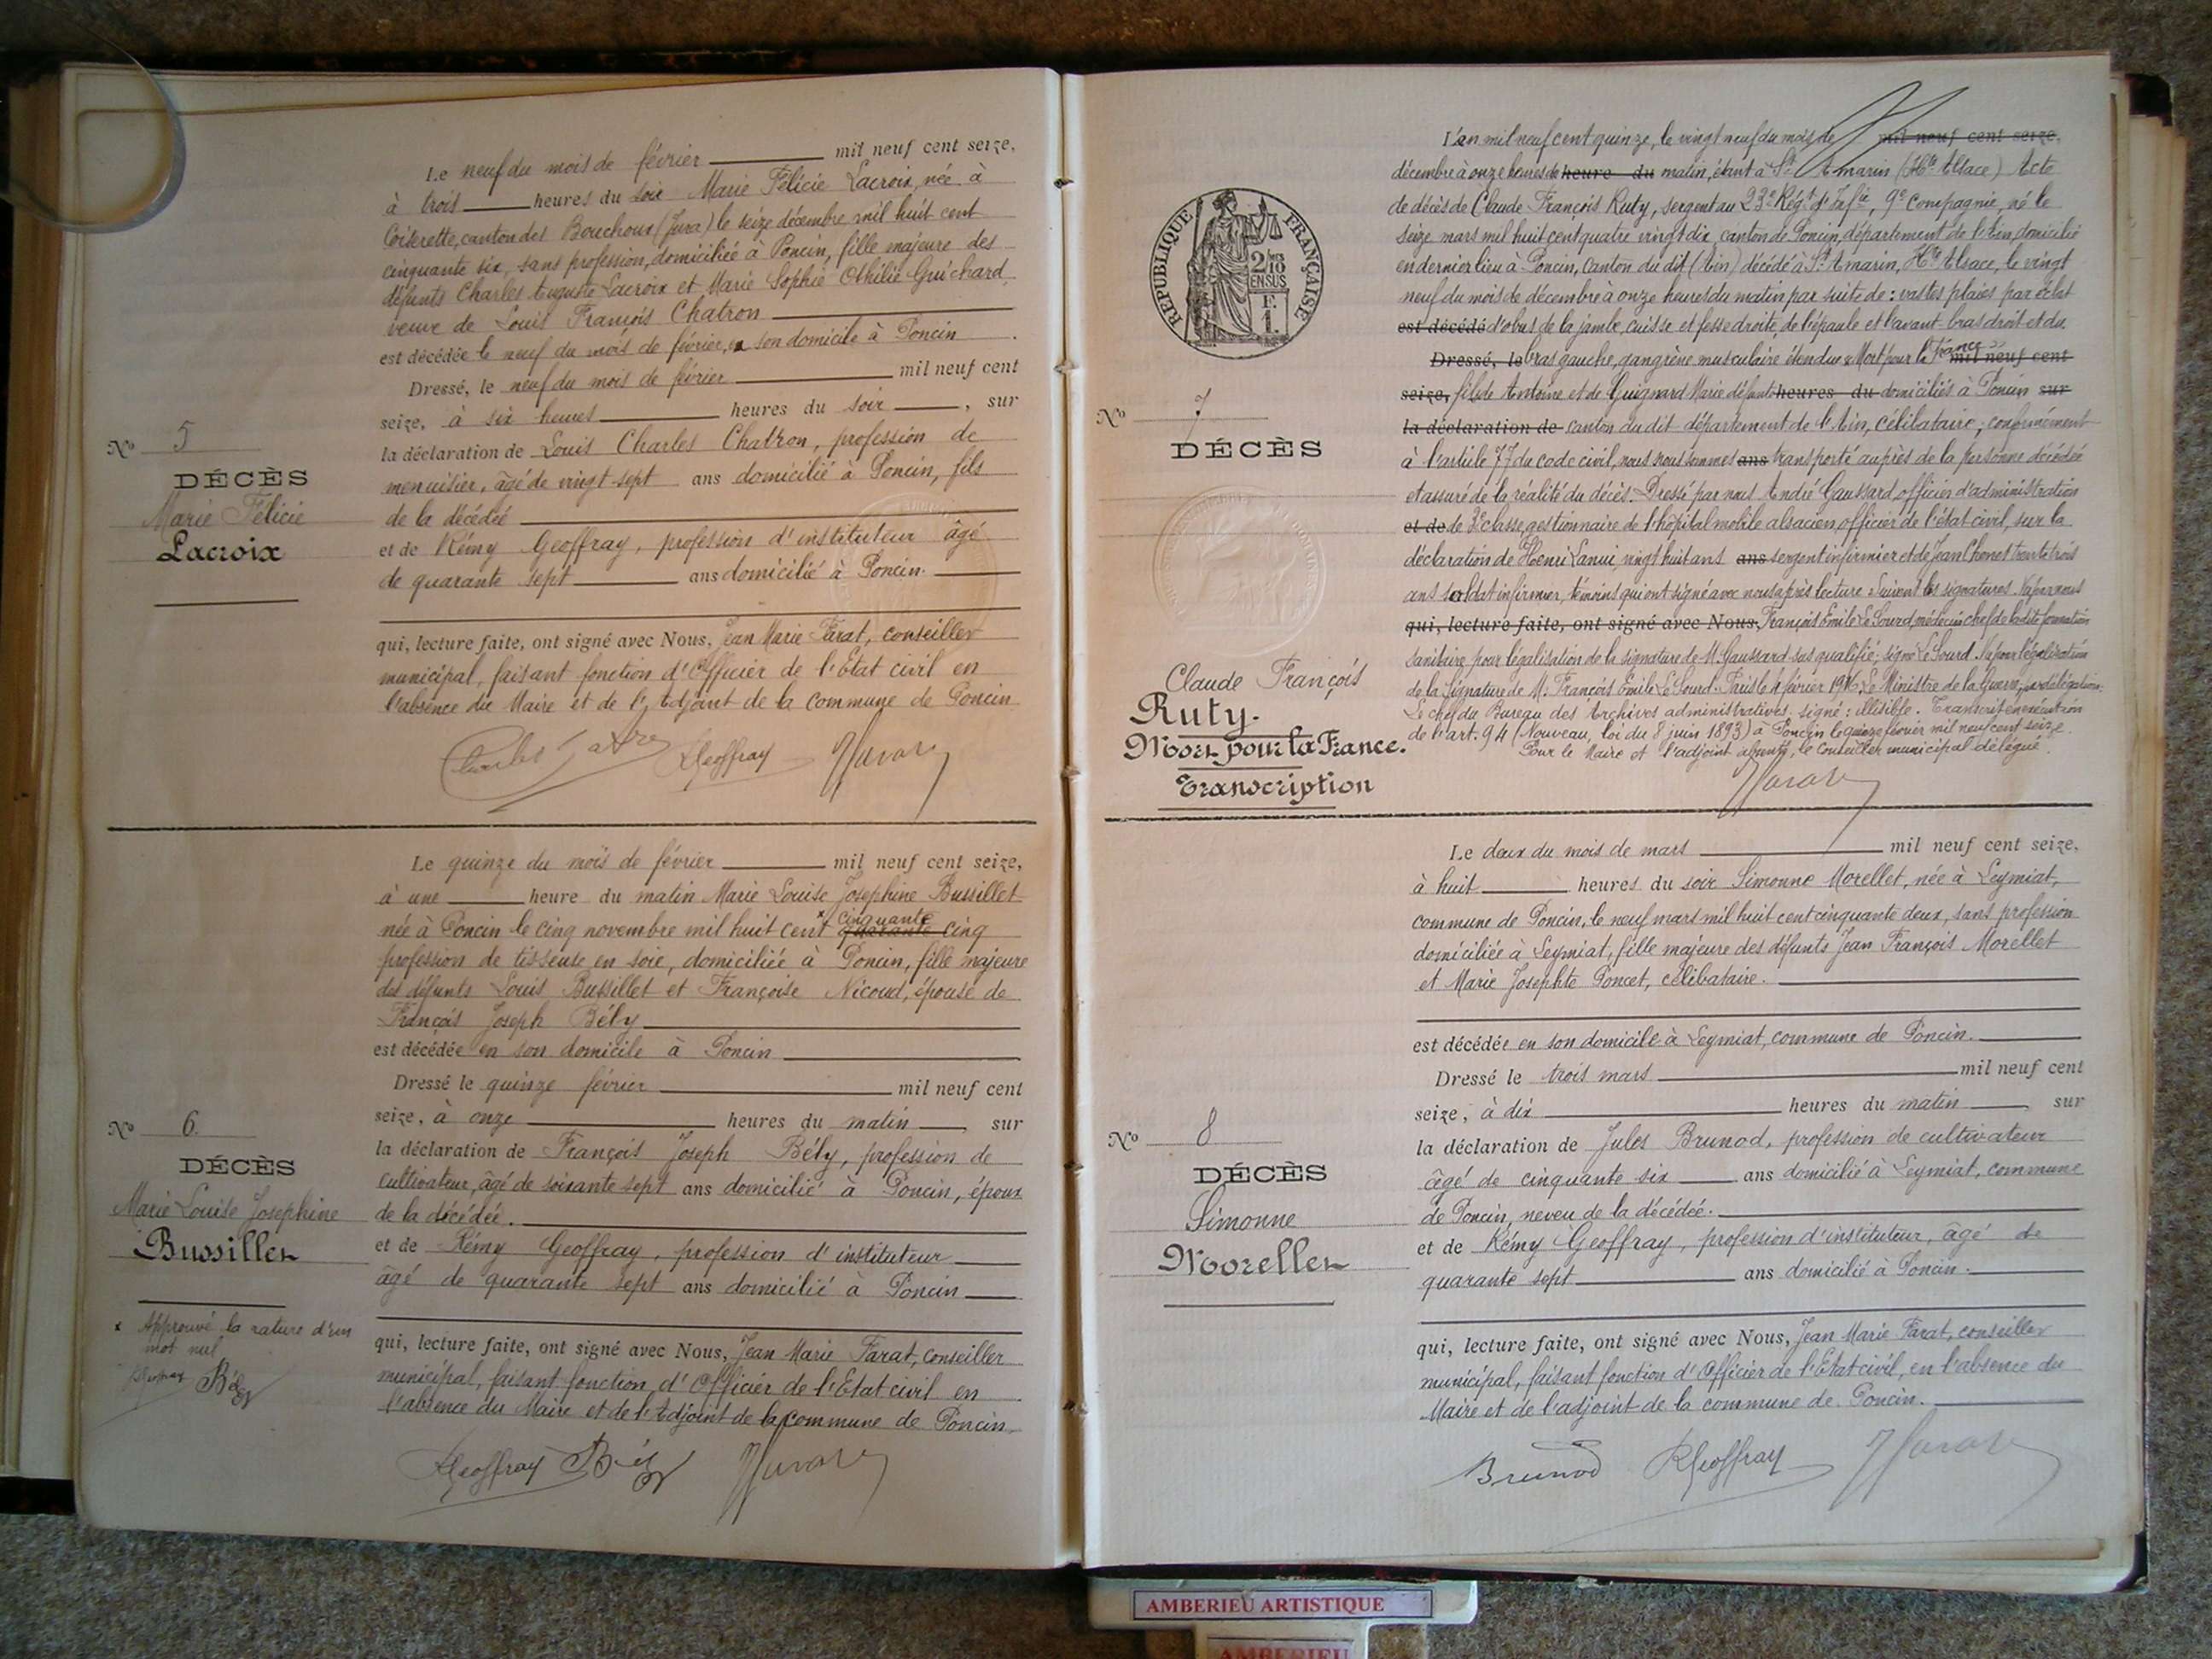 Le neuf du mois de février mil neuf cent seize,
à trois heures du soir Marie Félicie Lacroix, née à
Coiserette, canton des Bouchoux (Jura) le seize décembre mil huit cent
cinquante six, sans profession, domiciliée à Poncin, fille majeure des
défunts Charles Auguste Lacroix et Marie Sophie Othilie Guichard,
veuve de Louis François Chatron
est décédée le neuf du mois de février, en son domicile à Poncin.
Dressé, le neuf du mois de février mil neuf cent
seize, à six heures heures du soir, sur
la déclaration de Louis Charles Chatron, profession de
menuisier, âgé de vingt sept ans domicilié à Poncin, fils
de la décédée
et de Rémy Geoffray, profession d'instituteur âgé
de quarante sept ans domicilié à Poncin.
qui, lecture faite, ont signé avec Nous, Jean Marie Farat, conseiller
municipal, faisant fonction d'Officier de l'Etat civil en
l'absence du Maire et de l'Adjoint de la commune de Poncin
RGeoffray
No 5
DÉCÈS
Marie Félicie
Lacroix
Le quinze du mois de février mil neuf cent seize,
à une heure du matin Marie Louise Josephine Bussillet
née à Poncin le cinq novembre mil huit cent x cinquante quarante cinq
profession de tisseuse en soie, domiciliée à Poncin, fille majeure
des défunts Louis Bussillet et Françoise Nicoud, épouse de
François Joseph Bély
est décédée en son domicile à Poncin
Dressé le quinze février mil neuf cent
seize, à onze heures du matin, sur
la déclaration de François Joseph Bély, profession de
cultivateur, âgé de soixante sept ans domicilié à Poncin, époux
de la décédée.
et de Rémy Geoffray, profession d'instituteur
âgé de quarante sept ans domicilié à Poncin
qui, lecture faite, ont signé avec Nous, Jean Marie Farat, conseiller
municipal, faisant fonction d'Officier de l'Etat civil en
l'absence du Maire et de l'Adjoint de la commune de Poncin.
RGeoffray Bély
No 6.
DÉCÈS
Marie Louise Josephine
Bussillet
x Approuvé la rature d'un
mot nul
RGeoffray Bély
L'an mil neuf cent quinze, le vingt neuf du mois de mil neuf cent seize,
décembre à onze heures de heure du matin, étant à St Amarin (Hte Alsace) Acte
de décès de Claude François Ruty, sergent au 23e Régt d'Infie, 9e compagnie, né le
seize mars mil huit cent quatre vingt dix, canton de Poncin, département de l'Ain, domicilié
en dernier lieu à Poncin, canton du dit (Ain) décédé à St Amarin, Hte Alsace, le vingt
neuf du mois de décembre à onze heures du matin par suite de : vastes plaies par éclat
est décédé d'obus de la jambe, cuisse et fesse droite, de l'épaule et l'avant-bras droit et du
Dressé, le bras gauche, gangrène musculaire étendue "Mort pour la France" mil neuf cent
seize, fils de Antoine et de Guignard Marie défunts heures du domiciliés à Poncin sur
la déclaration de canton du dit département de l'Ain, célibataire; conformément
à l'article 77 du code civil, nous nous sommes ans transporté auprès de la personne décédée
et assuré de la réalité du décès. Dressé par nous André Gaussard officier d'administration
et de de 3e classe, gestionnaire de l'hôpital mobile alsacien, officier de l'état civil, sur la
déclaration de Henri Lanui, vingt huit ans ans sergent infirmier et de Jean Chenet trente trois
ans soldat infirmier, témoins qui ont signé avec nous après lecture. Suivent les signatures. Vu par nous
qui, lecture faite, ont signé avec Nous, François Emile Le Sourd, médecin chef de la dite formation
sanitaire pour légalisation de la signature de M. Gaussard sus qualifié; signé Le Sourd. Vu pour légalisation
de la signature de M. François Emile Le Sourd. Paris le février 1916. Le Ministre de la Guerre, par délégation:
Le chef du Bureau des Archives administratives. signé : illisible. Transcrit en exécution
de l'art. 94 (Nouveau, loi du 8 juin 1893) à Poncin le quinze février mil neuf cent seize.
Pour le Maire et l'adjoint absents, le Conseiller municipal délégué.
RÉPUBLIQUE FRANÇAISE
2/10
EN SUS
1 F.
No 7
DÉCÈS
Claude François
Ruty.
Mort pour la France.
Transcription
Le deux du mois de mars mil neuf cent seize,
à huit heures du soir Simonne Morellet, née à Leymiat,
commune de Poncin, le neuf mars mil huit cent cinquante deux, sans profession
domiciliée à Leymiat, fille majeure des défunts Jean François Morellet
et Marie Josephte Poncet, célibataire.
est décédée en son domicile à Leymiat, commune de Poncin.
Dressé le trois mars mil neuf cent
seize, à dix heures du matin sur
la déclaration de Jules Brunod, profession de cultivateur
âgé de cinquante six ans domicilié à Leymiat, commune
de Poncin, neveu de la décédée.
et de Rémy Geoffray, profession d'instituteur, âgé de
quarante sept ans domicilié à Poncin.
qui, lecture faite, ont signé avec Nous, Jean Marie Farat, conseiller
municipal, faisant fonction d'Officier de l'Etat civil, en l'absence du
Maire et de l'adjoint de la commune de Poncin.
Brunod RGeoffray JFarat
No 8
DÉCÈS
Simonne
Morellet
AMBERIEU ARTISTIQUE
AMBERIEU